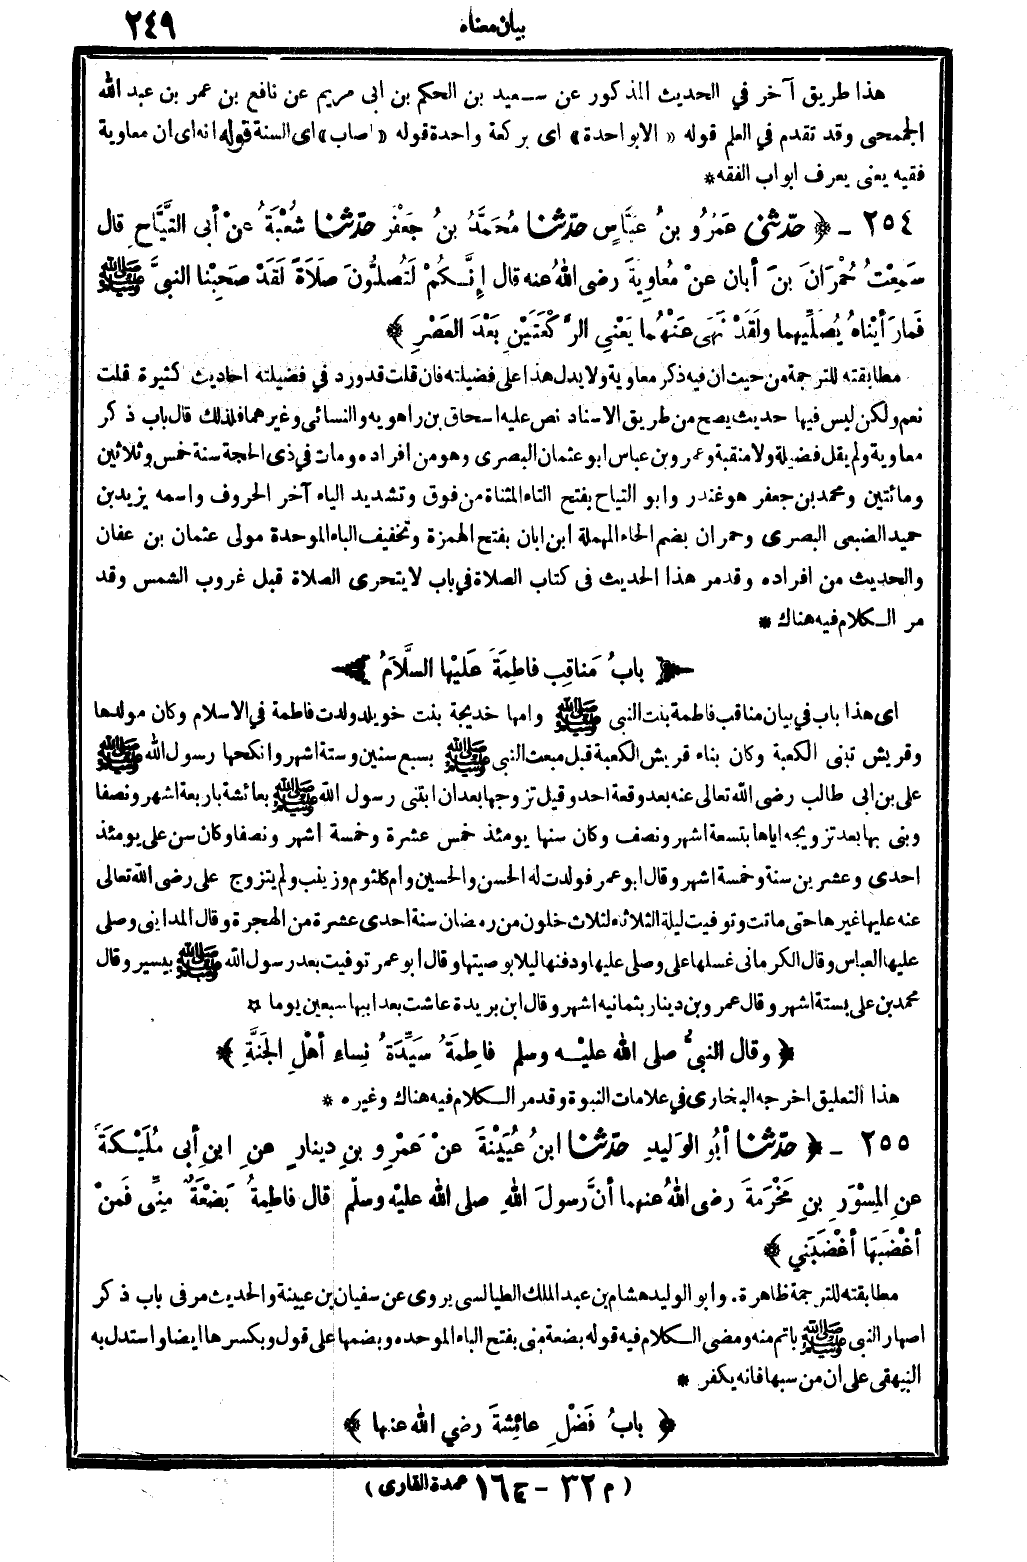 بيان معناه ٢٤٩
هذا طريق آخر في الحديث المذكور عن سعيد بن الحكم بن ابى مريم عن نافع بن عمر بن عبد الله
الجمحى وقد تقدم في العلم قوله «الابواحدة» اى بركعة واحدة قوله «اصاب» اى السنة قوله انه اى ان معاوية
فقيه يعنى يعرف ابواب الفقه *
٢٥٤ - ﴿ حدّثني عَمْرُو بنُ عَبَّاسٍ حدّثنا مُحَمَّدُ بنُ جَعْفَرٍ حدّثنا شُعْبَةُ عنْ أبى التَّيَّاحِ قال
سَمِعْتُ حُمْرَانَ بنَ أبان عنْ مُعاوِيةَ رضى اللهُ عنه قال إِنَّكُمْ لَتُصلُّونَ صلَاةً لَقَدْ صَحِبْنا النبيَّ ﷺ
فَمارَأيْناهُ يُصَلِّيهِما ولَقَدْ نَهَى عَنْهُما يَعْنِي الرَّكْعَتَيْنِ بَعْدَ العَصْرِ ﴾
مطابقته للترجمة من حيث ان فيه ذكر معاوية ولا يدل هذا على فضيلته فان قلت قدورد في فضيلته احاديث كثيرة قلت
نعم ولكن ليس فيها حديث يصح من طريق الاسناد نص عليه اسحاق بن راهويه والنسائى وغيرهما فلذلك قال باب ذكر
معاوية ولم يقل فضيلة ولا منقبة وعمرو بن عباس ابو عثمان البصرى وهو من افراده ومات في ذى الحجة سنة خمس وثلاثين
ومائتين ومحمد بن جعفر هو غندر وابو التياح بفتح التاء المثناة من فوق وتشديد الياء آخر الحروف واسمه يزيد بن
حميد الضبعى البصرى وحمران بضم الحاء المهملة ابن ابان بفتح الهمزة وتخفيف الباء الموحدة مولى عثمان بن عفان
والحديث من افراده وقدمر هذا الحديث فى كتاب الصلاة في باب لا يتحرى الصلاة قبل غروب الشمس وقد
مر الكلام فيه هناك *
﴿ بابُ مَناقِبِ فاطِمَةَ عَلَيْها السَّلَامُ ﴾
اى هذا باب في بيان مناقب فاطمة بنت النبى ﷺ وامها خديجة بنت خويلد ولدت فاطمة في الاسلام وكان مولدها
وقريش تبنى الكعبة وكان بناء قريش الكعبة قبل مبعث النبى ﷺ بسبع سنين وستة اشهر وانكحها رسول الله ﷺ
على بن ابى طالب رضى الله تعالى عنه بعد وقعة احد وقيل تزوجها بعد ان ابتنى رسول الله ﷺ بعائشة باربعة اشهر ونصفا
وبنى بها بعد تزويجه اياها بتسعة اشهر ونصف وكان سنها يومئذ خمس عشرة وخمسة اشهر ونصفا وكان سن على يومئذ
احدى وعشرين سنة وخمسة اشهر وقال ابو عمر فولدت له الحسن والحسين وام كلثوم وزينب ولم يتزوج على رضى الله تعالى
عنه عليها غيرها حتى ماتت وتوفيت ليلة الثلاثاء لثلاث خلون من رمضان سنة احدى عشرة من الهجرة وقال المداينى وصلى
عليها العباس وقال الكرمانى غسلها على وصلى عليها ودفنها ليلا بوصيتها وقال ابو عمر توفيت بعد رسول الله ﷺ بيسير وقال
محمد بن على بستة اشهر وقال عمرو بن دينار بثمانيه اشهر وقال ابن بريدة عاشت بعد ابيها سبعين يوما *
﴿ وقال النبيُّ صلى الله عليه وسلم فاطِمَةُ سَيِّدَةُ نِساءِ أهْلِ الجَنَّةِ ﴾
هذا التعليق اخرجه البخارى في علامات النبوة وقدمر الكلام فيه هناك وغيره *
٢٥٥ - ﴿ حدّثنا أبُو الوَليدِ حدّثنا ابنُ عُيَيْنَةَ عنْ عَمْرِو بنِ دِينارٍ عنِ ابنِ أبى مُلَيْكَةَ
عنِ المِسْوَرِ بنِ مَخْرَمَةَ رضى اللهُ عنهما أنَّ رسولَ اللهِ صلى الله عليْه وسلّم قال فاطِمةُ بَضْعَةٌ مِنِّى فَمنْ
أغْضَبَها أغْضَبَنِي ﴾
مطابقته للترجمة ظاهرة. وابو الوليد هشام بن عبد الملك الطيالسى يروى عن سفيان بن عيينة والحديث مر فى باب ذكر
اصهار النبى ﷺ باتم منه ومضى الكلام فيه قوله بضعة منى بفتح الباء الموحده وبضمها على قول وبكسرها ايضا واستدل به
البيهقى على ان من سبها فانه يكفر *
﴿ بابُ فَضْلِ عائِشَةَ رضي الله عنها ﴾
(م ٣٢ - ج ١٦ عمدة القارى)